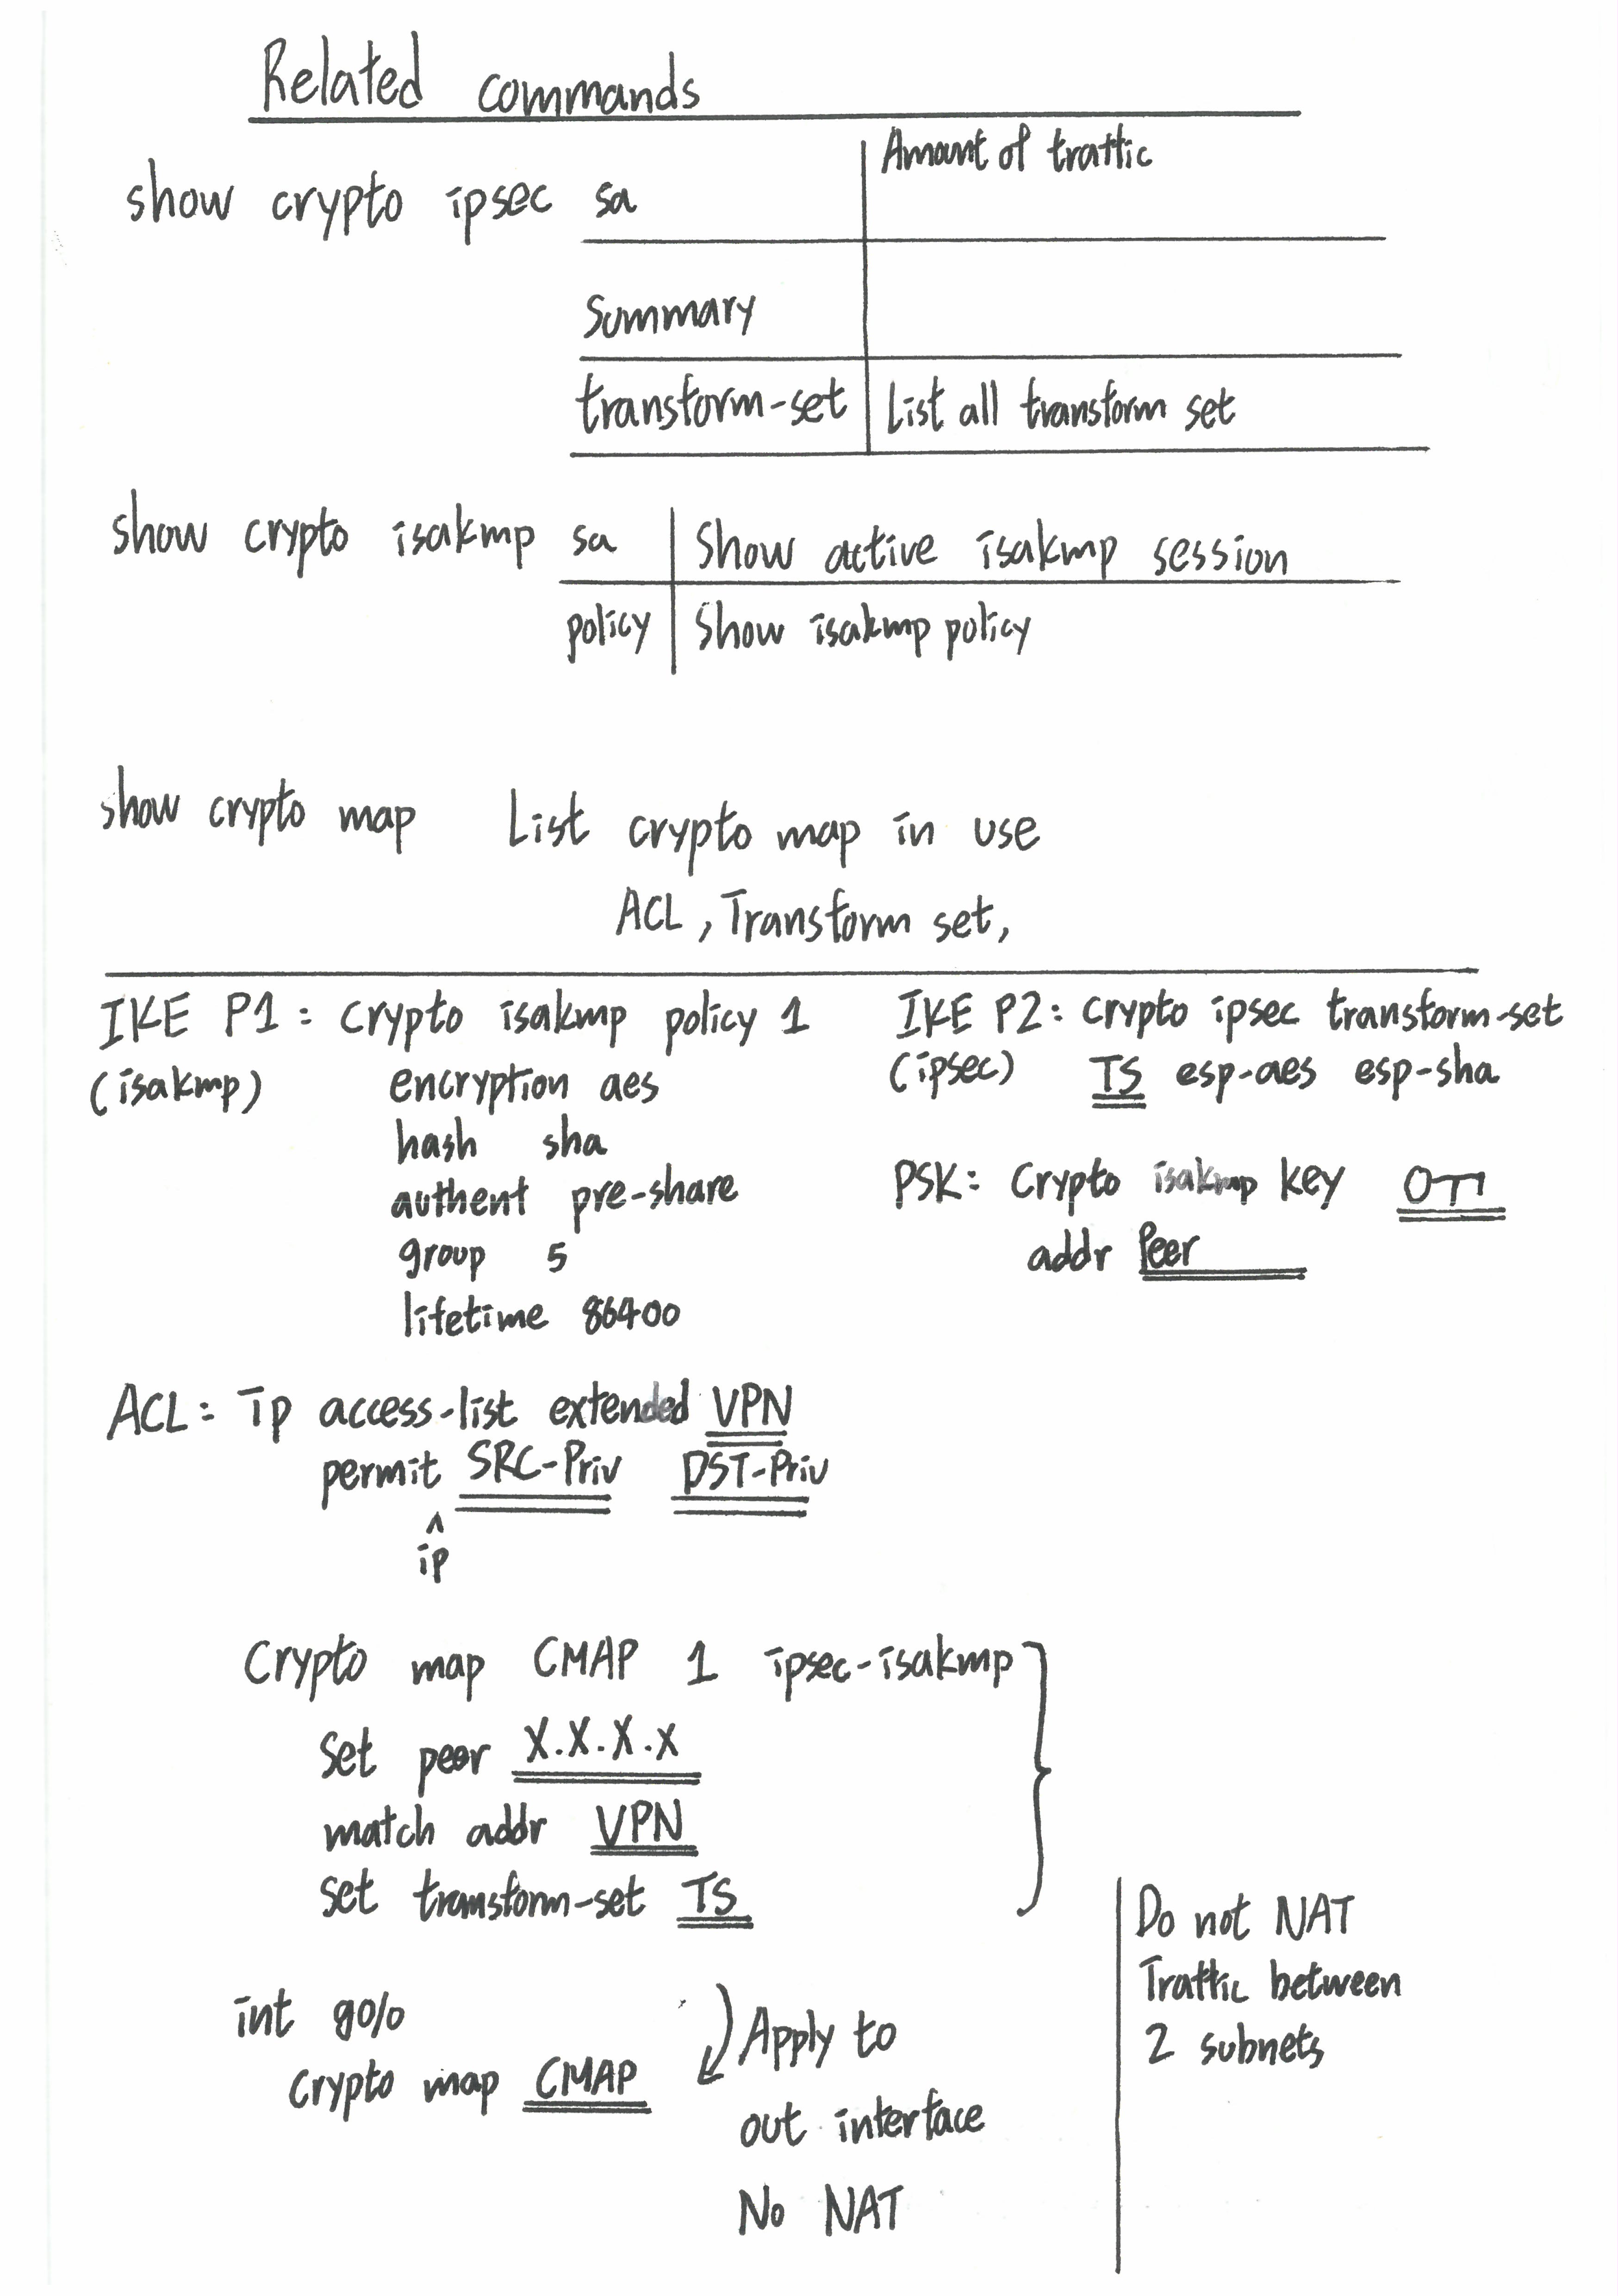 Related commands
show crypto ipsec sa Amount of traffic
Summary
transform-set List all transform set
show crypto isakmp sa Show active isakmp session
policy Show isakmp policy
show crypto map List crypto map in use
ACL, Transform set,
IKE P1: crypto isakmp policy 1
(isakmp) encryption aes
hash sha
authent pre-share
group 5
lifetime 86400
IKE P2: crypto ipsec transform-set
(ipsec) TS esp-aes esp-sha
PSK: Crypto isakmp key
addr Peer
ACL: ip access-list extended VPN
permit SRC-Priv DST-Priv
^
ip
Crypto map CMAP 1 ipsec-isakmp
Set peer X.X.X.X
match addr VPN
set transform-set TS
int g0/0
crypto map CMAP
Apply to
out interface
No NAT
Do not NAT
Traffic between
2 subnets